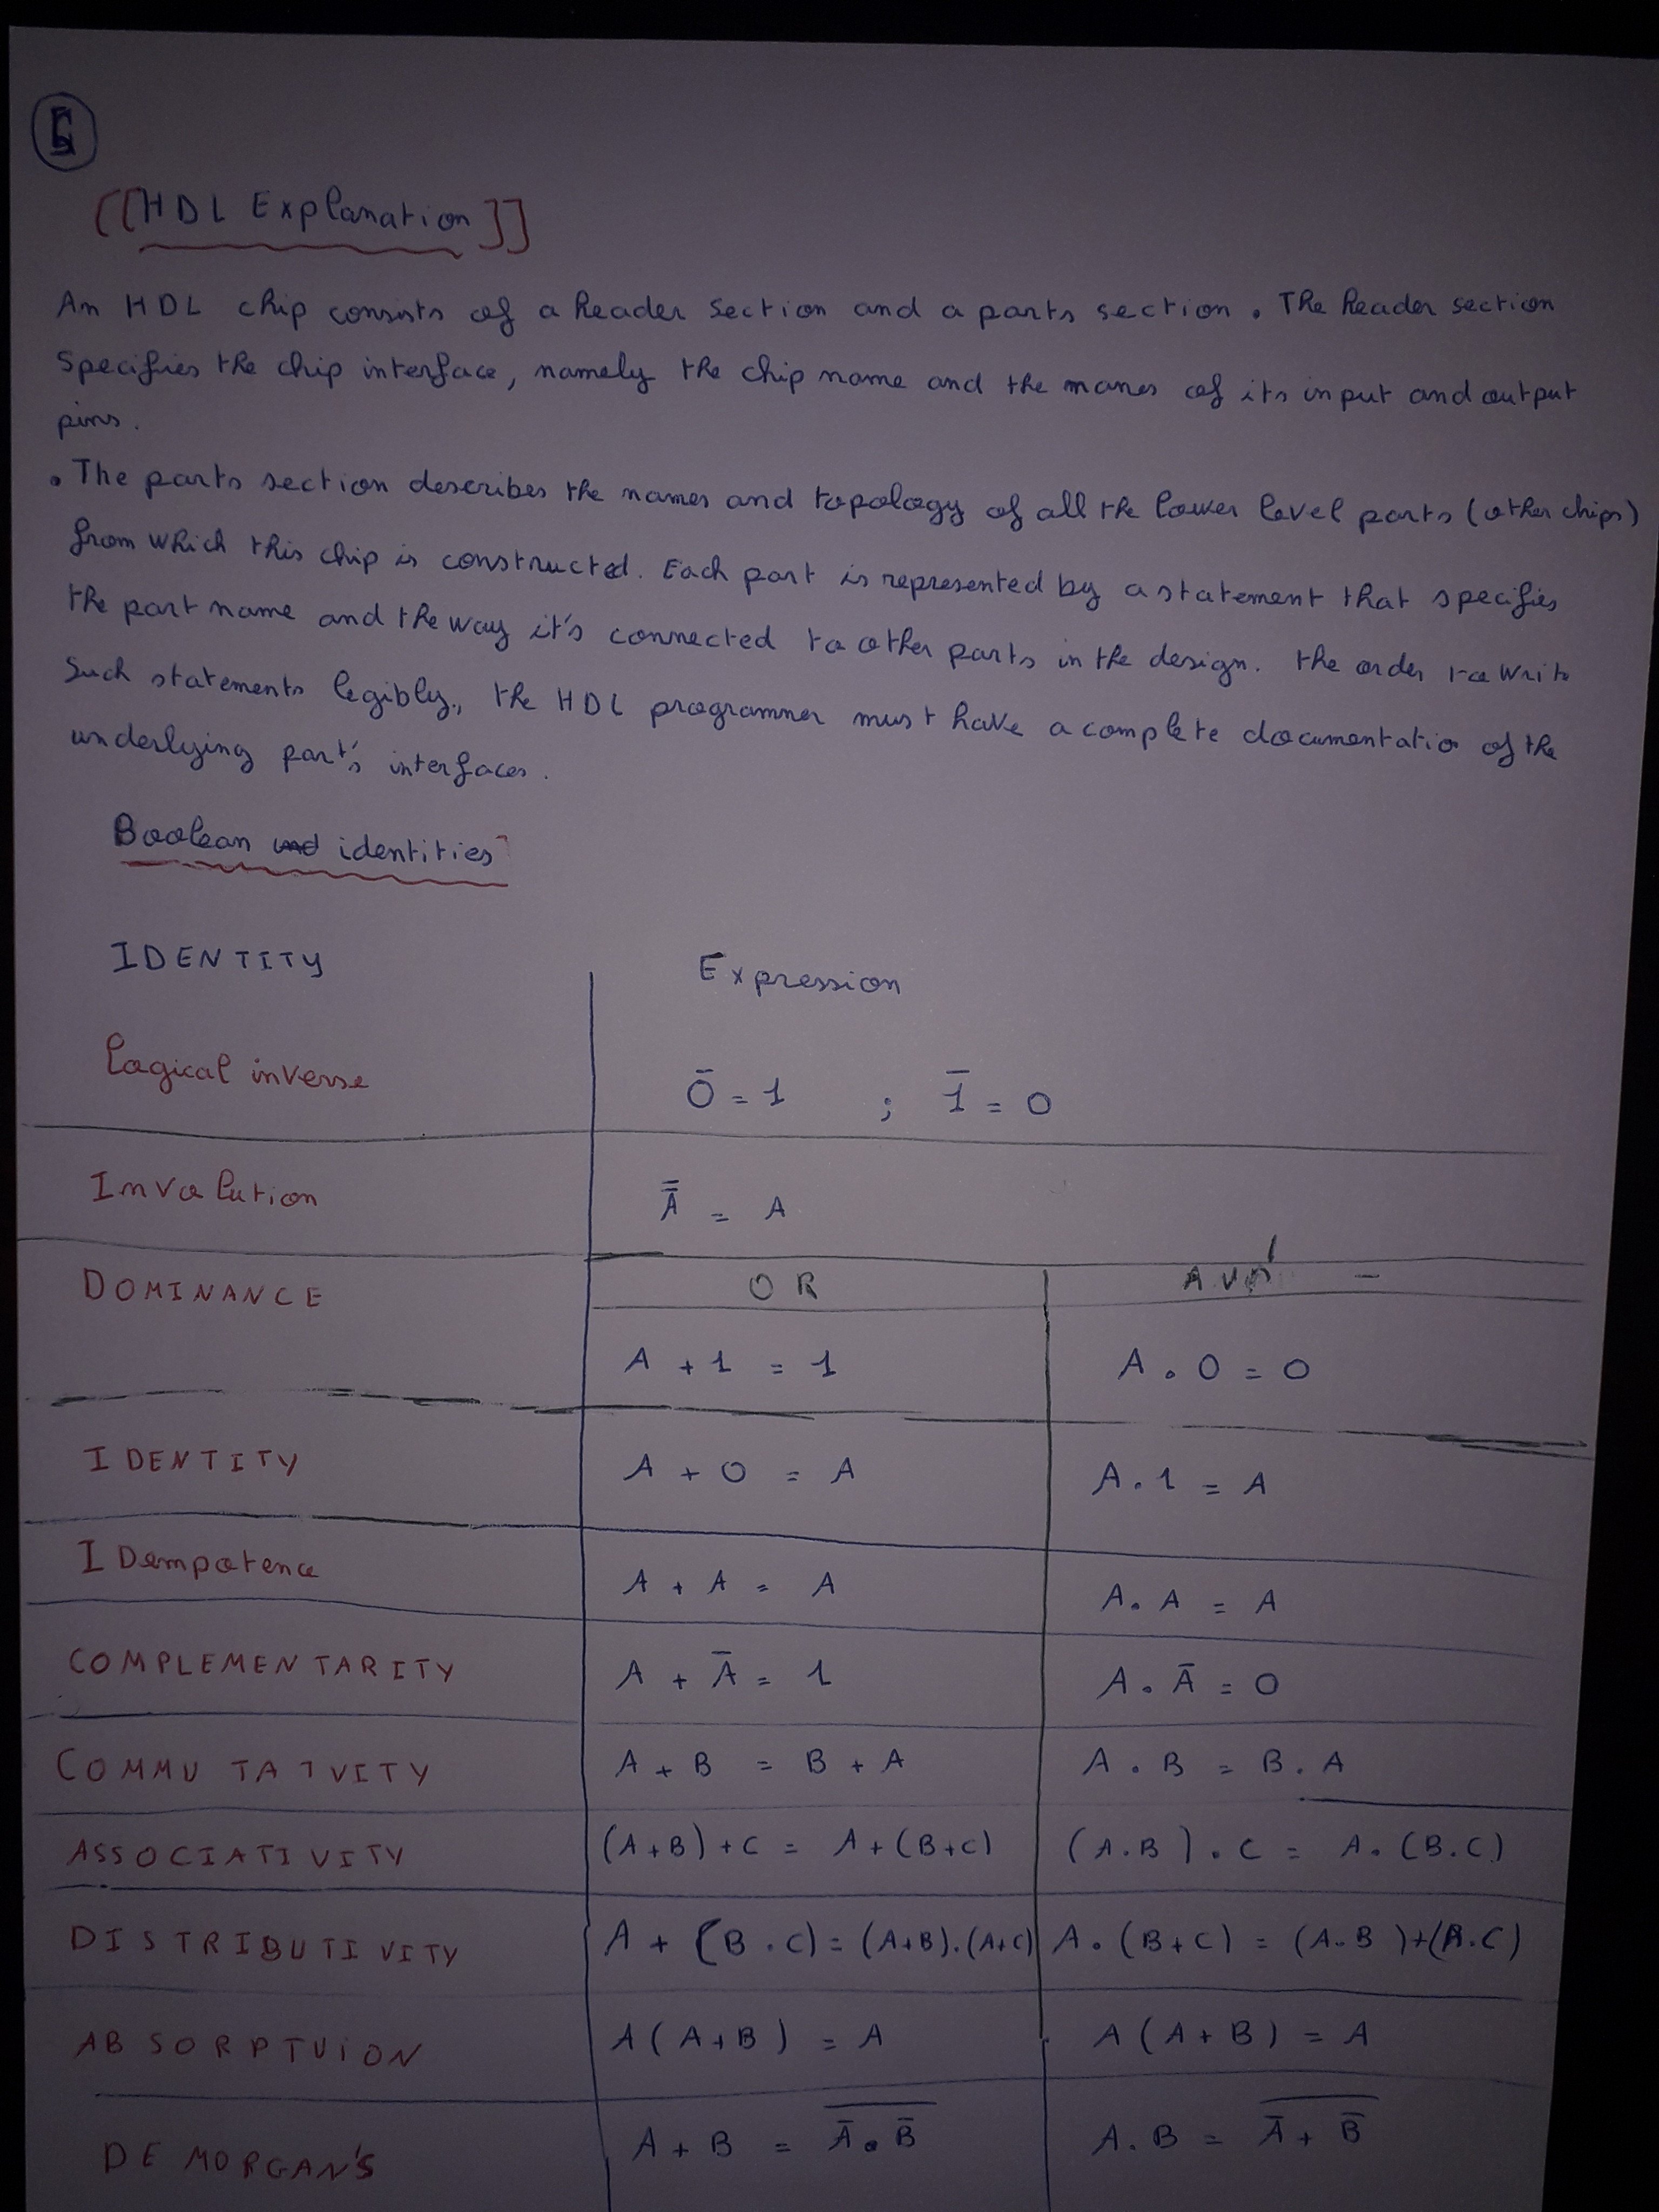 [[HDL Explanation]]
An HDL chip consists of a header section and a parts section. The header section
Specifies the chip interface, namely the chip name and the manes of its input and output
pins.
• The parts section describes the names and topology of all the lower level parts (other chips)
from which this chip is constructed. Each part is represented by a statement that specifies
the part name and the way it's connected to other parts in the design. the order to write
Such statements legibly, the HDL programmer must have a complete documentatio of the
underlying part's interfaces.
Boolean identities
IDENTITY Expression
Logical inverse 0̄ = 1 ; 1̄ = 0
Involution A̿ = A
DOMINANCE OR
A + 1 = 1 A . 0 = 0
IDENTITY A + 0 = A A . 1 = A
IDempotence A + A = A A . A = A
COMPLEMENTARITY A + Ā = 1 A . Ā = 0
COMMUTATIVITY A + B = B + A A . B = B . A
ASSOCIATIVITY (A+B)+C = A+(B+C) (A.B).C = A.(B.C)
DISTRIBUTIVITY A + (B.C) = (A+B).(A+C) A.(B+C) = (A.B)+(A.C)
ABSORPTUION A(A+B) = A A(A+B) = A
DE MORGAN'S A + B = \overline{Ā . B̄} A . B = \overline{Ā + B̄}